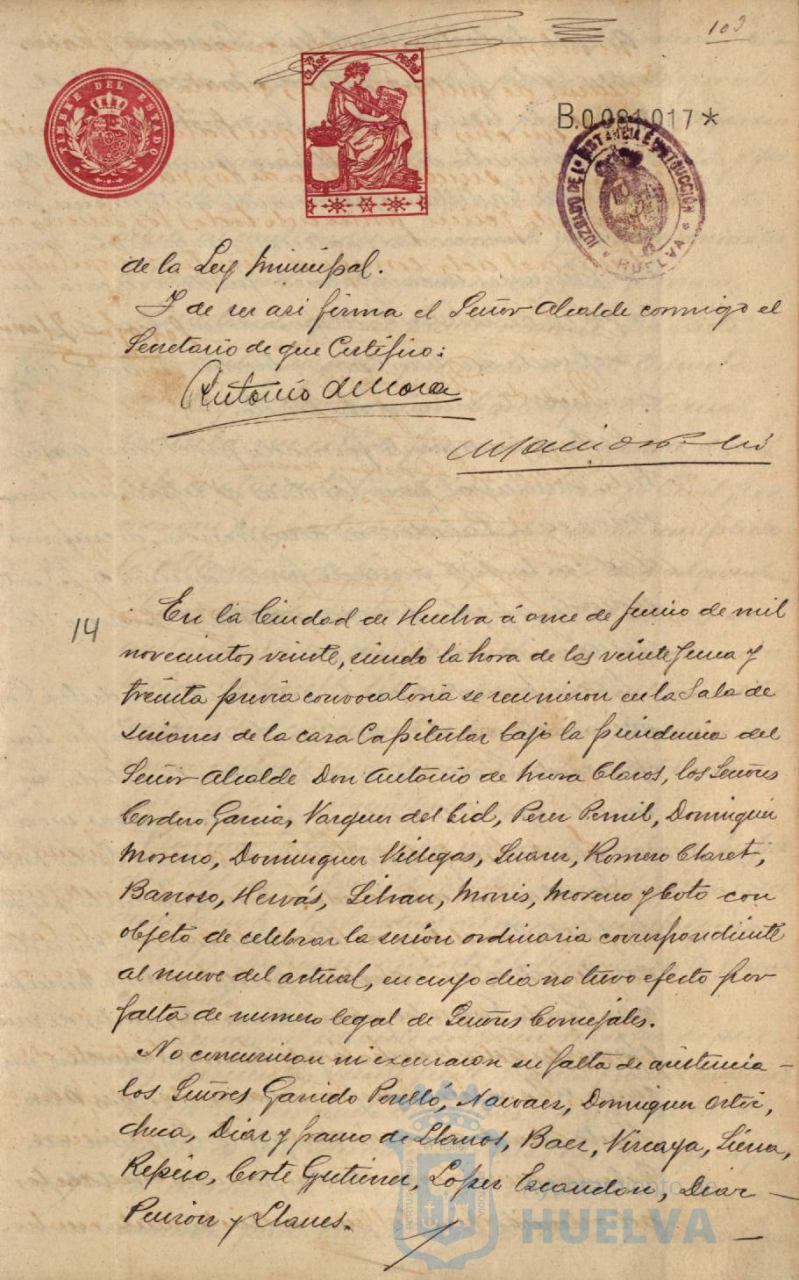 103
TIMBRE DEL ESTADO
7ª CLASE
PESETAS
B.0.081.017*
JUZGADO DE 1ª INSTANCIA É INSTRUCCIÓN
* HUELVA *
de la Ley Municipal.
Y de ser asi firma el Señor Alcalde conmigo el
Secretario de que Certifico:
Antonio de Mora
14
En la Ciudad de Huelva á once de Junio de mil
novecientos veinte, siendo la hora de las veinte y una y
treinta previa convocatoria se reunieron en la Sala de
sesiones de la casa Capitular bajo la presidencia del
Señor Alcalde Don Antonio de Mora Claros, los Señores
Cordero Garcia, Vazquez del Cid, Perez Pernil, Dominguez
Moreno, Dominguez Villegas, Suarez, Romero Claret,
Barroso, Hervás, Silvan, Morris, Moreno y Coto con
objeto de celebrar la sesión ordinaria correspondiente
al nueve del actual, en cuyo dia no tuvo efecto por
falta de numero legal de Señores Concejales.
No concurrieron ni excusaron su falta de asistencia
los Señores Garrido Perelló, Narvaez, Dominguez Ortiz,
Checa, Diaz y Franco de Llanos, Baez, Vizcaya, Sierra,
Repiso, Corte Gutierrez, Lopez Escandon, Diaz
y Llanes.
HUELVA